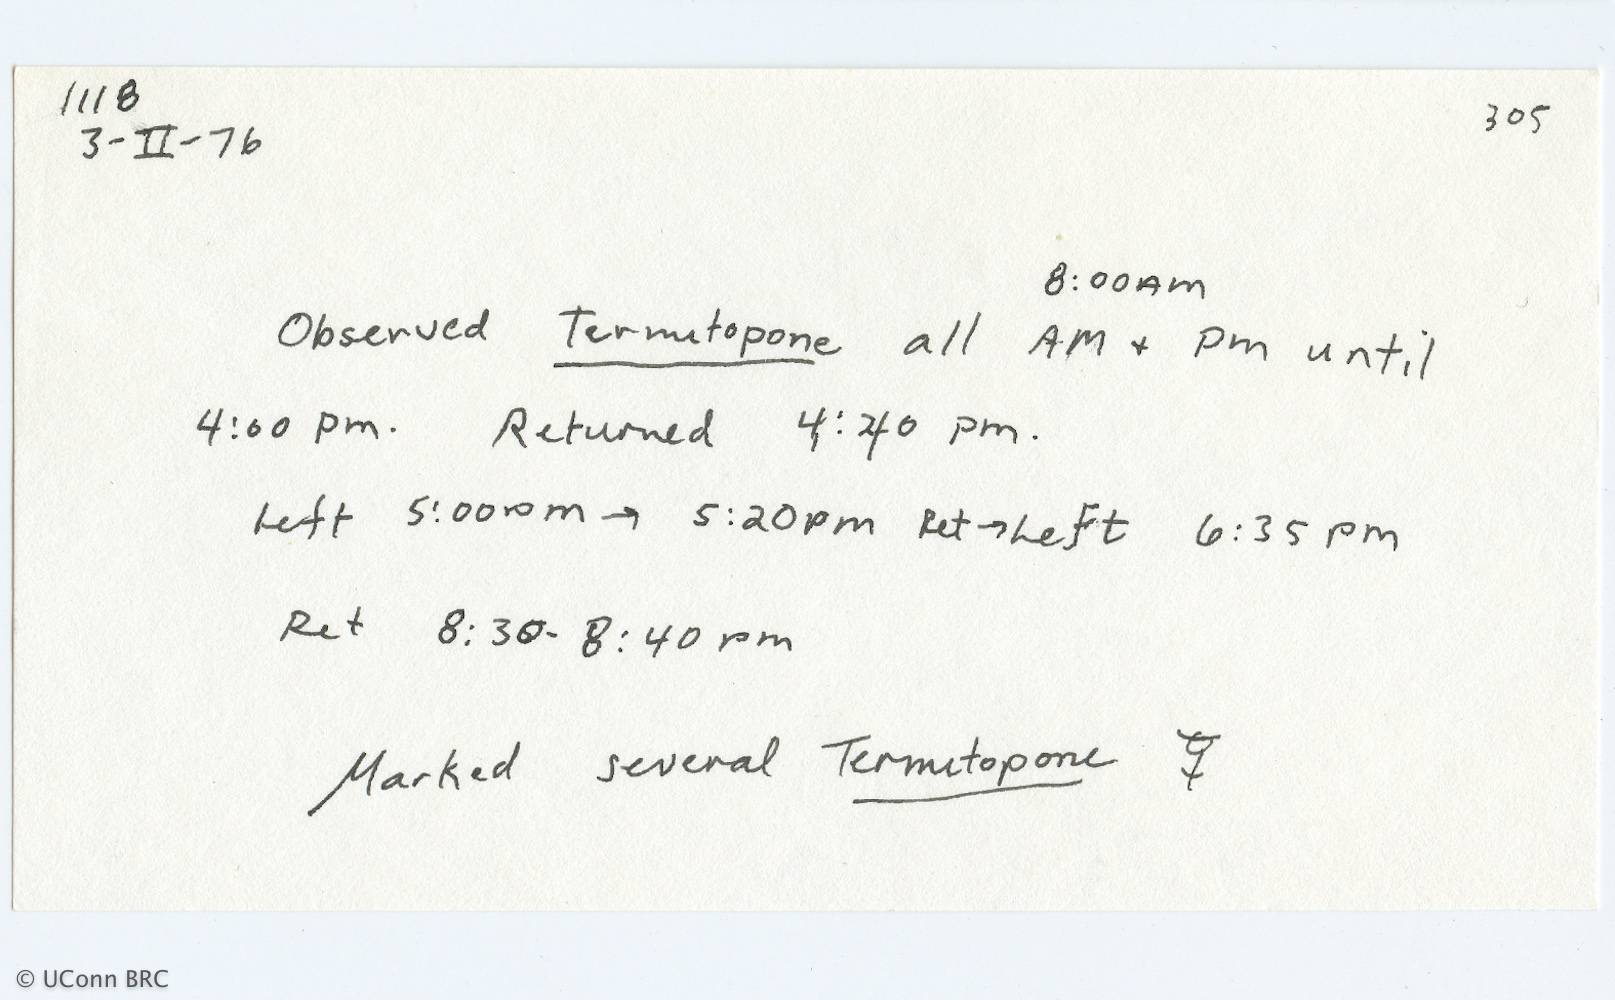 1118
3-II-76
305
8:00AM
Observed Termitopone all AM + Pm until
4:00 pm. Returned 4:20 pm.
Left 5:00pm → 5:20pm Ret → Left 6:35 pm
Ret 8:30- 8:40 pm
Marked several Termitopone ☿
© UConn BRC